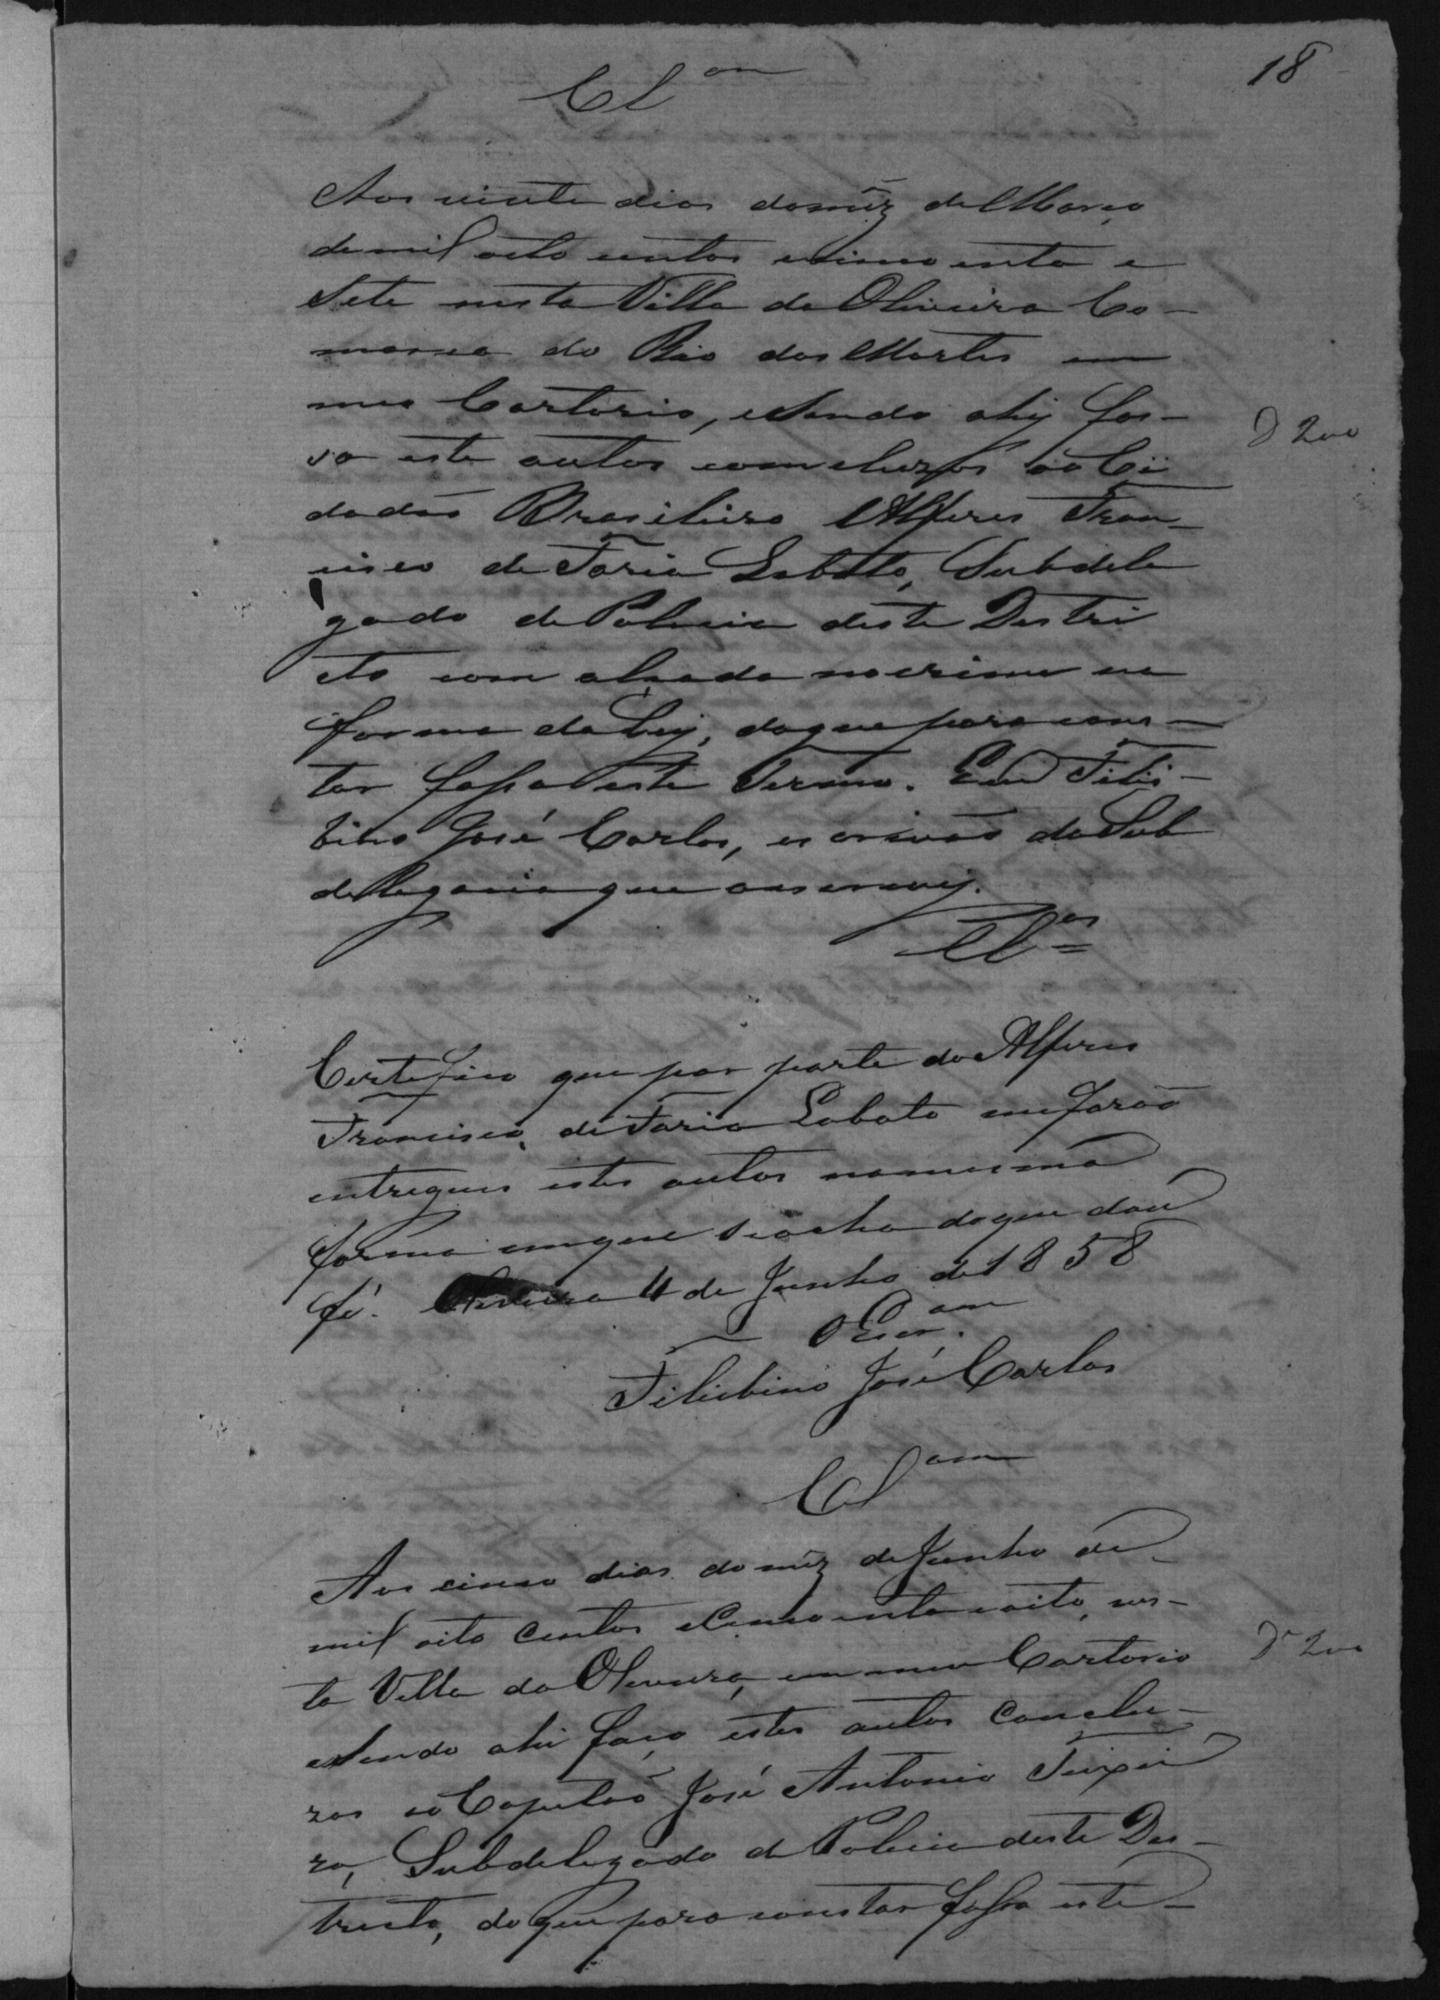 18
Cl.am
Aos vinte dias do mêz de Março
de mil oito centos e cinco enta e
Sete nesta Villa da Oliveira Co-
marca do Rio das Mortes em
meo Cartorio, e sendo ahy fas-
so este autos concluzos ao Ci
dadão Brasileiro Alferes Fran-
cisco de Faria Lobato, Subdele
gado de Policia deste Destri
cto com alçada no crime na
forma da Ley, do que para cons-
tar fasso este Termo. Eu Felis-
bino José Carlos, escrivão da Sub
delegacia que o escrevy.
D 200
Certefico que por parte do Alferes
Francisco de Faria Lobato me forão
entregues estes autos na mesma
forma em que se acha do que dou
fé. Oliveira 4 de Junho de 1858
O Escr.am
Felisbino José Carlos
Cl.am
Aos cinco dias do mêz de Junho de
mil oito centos e Cinco enta e oito, nes-
ta Villa da Oliveira, em meu Cartorio
e sendo ahi faço estes autos Conclu-
zos ao Capitão José Antonio Teixei
ra, Subdelegado de Policia deste Des-
tricto, do que para constar fasso este
D 200